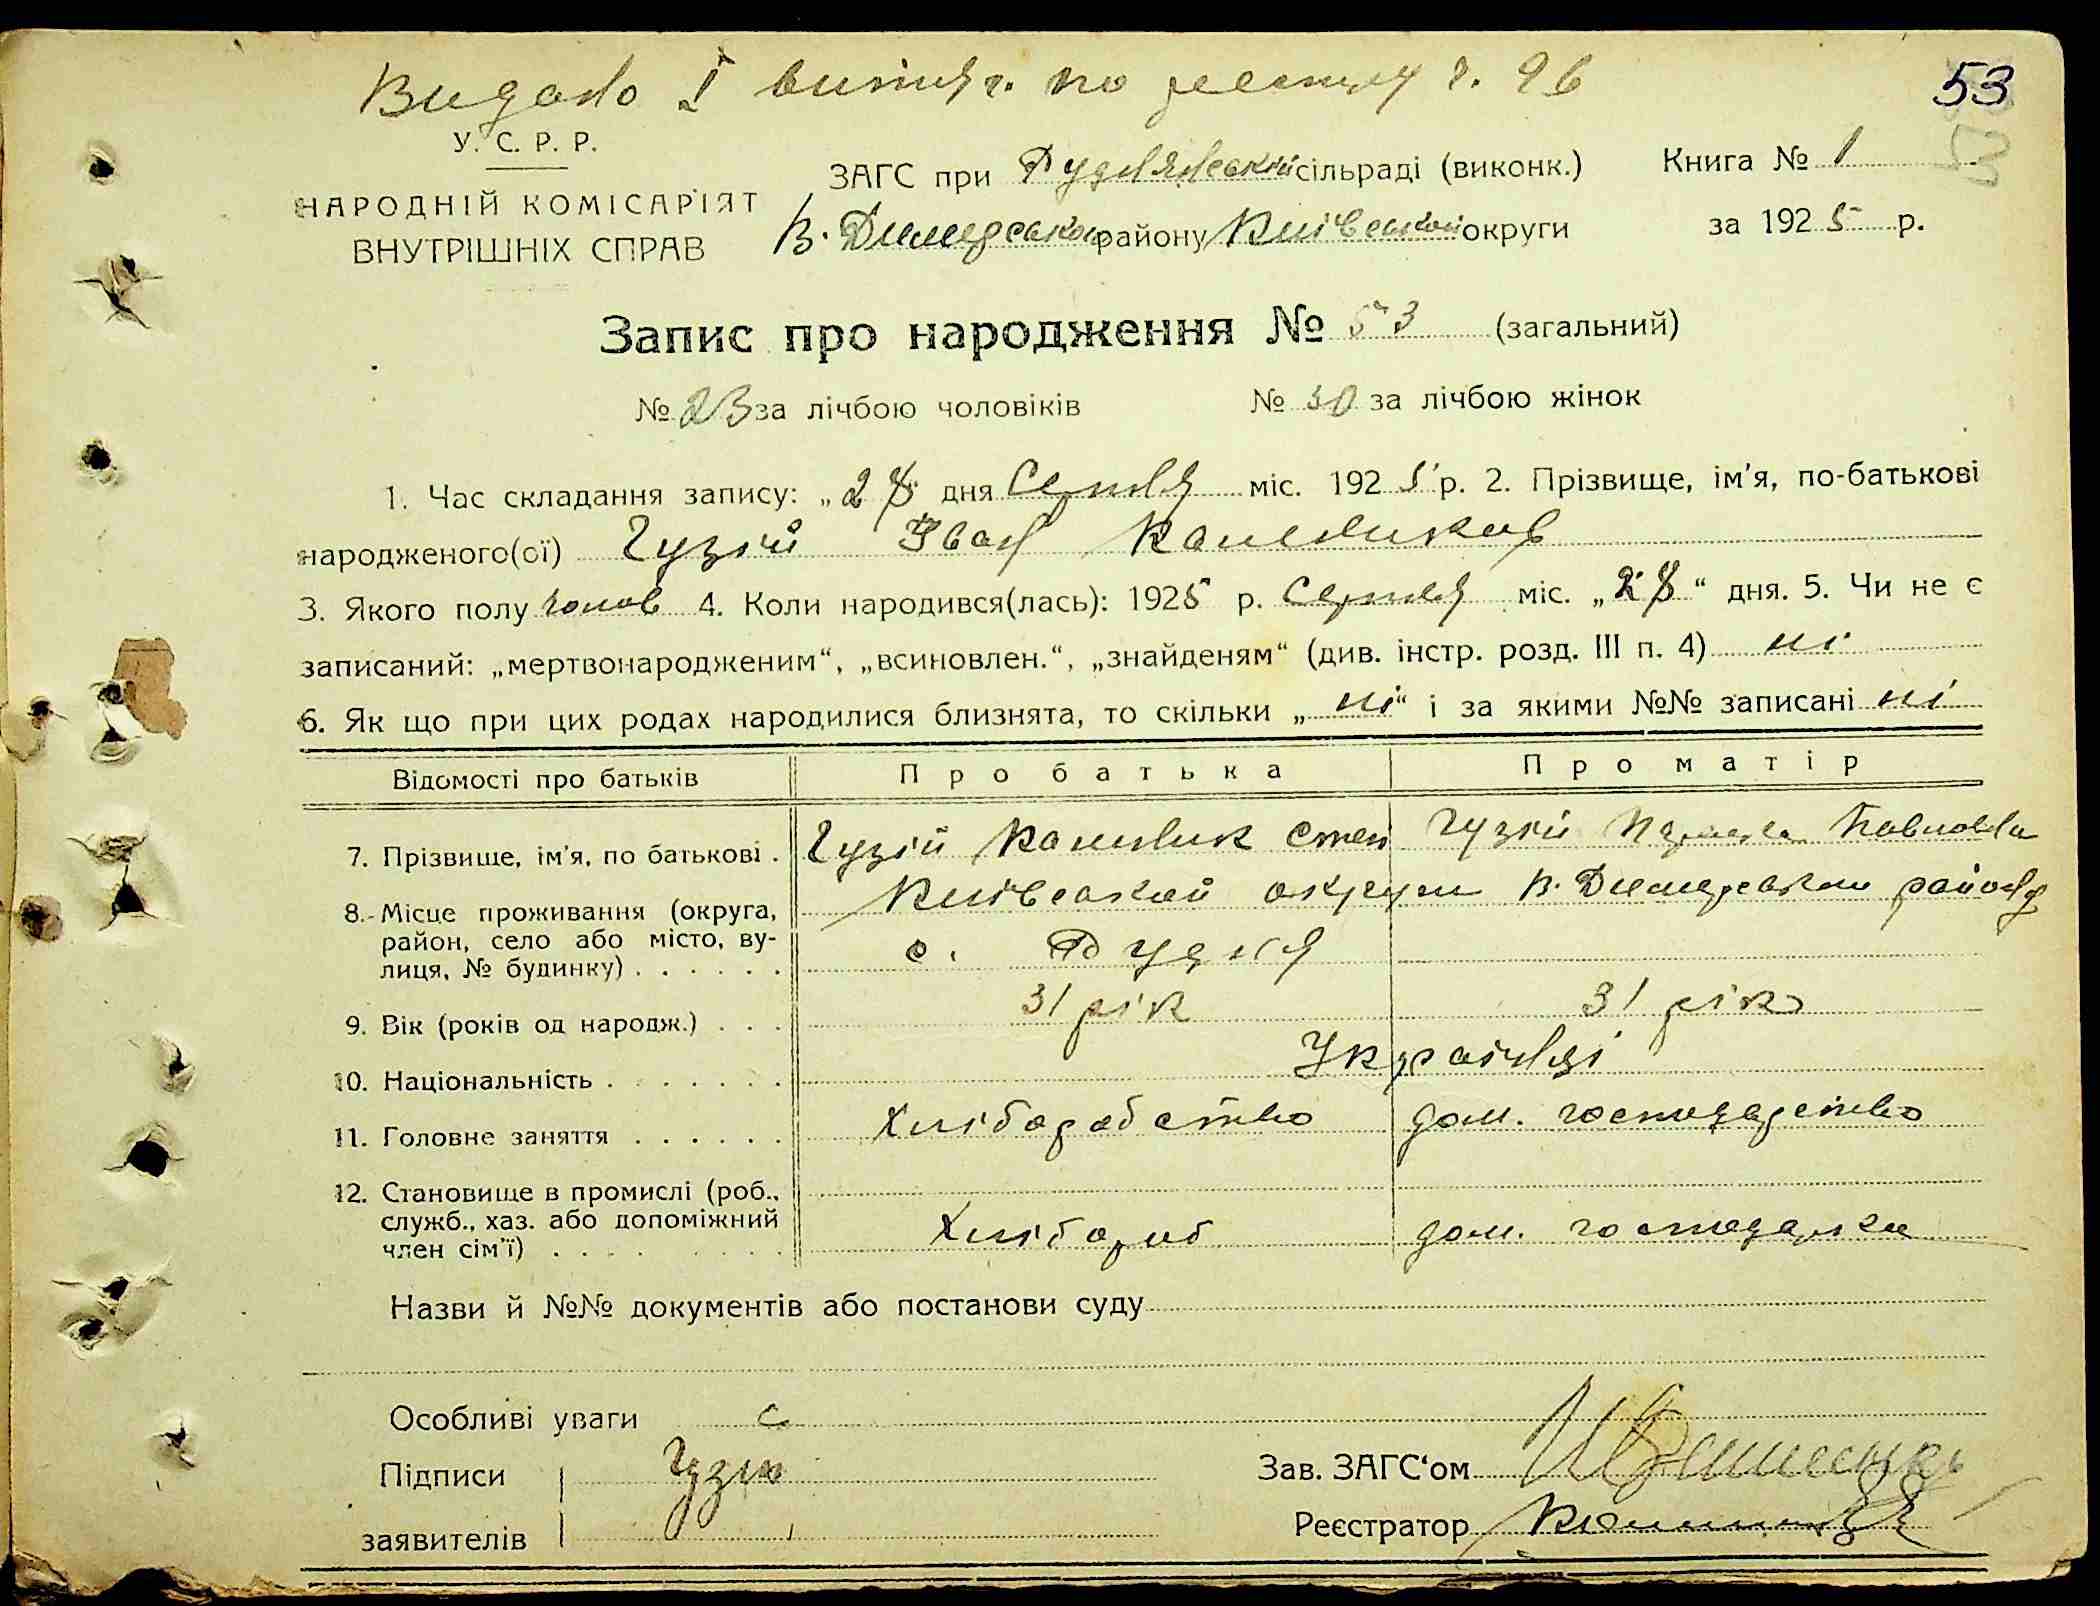 Видано I витяг. по реєстру ч. 96
53
У. С. Р. Р.
НАРОДНІЙ КОМІСАРІЯТ
ВНУТРІШНІХ СПРАВ
ЗАГС при Руднянській сільраді (виконк.)
Книга № 1
В. Димерському району Київської округи
за 1925 р.
Запис про народження № 53 (загальний)
№ 23 за лічбою чоловіків № 30 за лічбою жінок
1. Час складання запису: „28" дня Серпня міс. 1925 р. 2. Прізвище, ім'я, по-батькові
народженого(ої) Гузій Іван Калеників
3. Якого полу чолов 4. Коли народився(лась): 1925 р. Серпня міс. „28" дня. 5. Чи не є
записаний: „мертвонародженим", „всиновлен.", „знайденям" (див. інстр. розд. III п. 4) ні
6. Як що при цих родах народилися близнята, то скільки „ні" і за якими №№ записані ні
Відомості про батьків Про батька Про матір
7. Прізвище, ім'я, по батькові . Гузій Каленик Степ Гузій Павловна
8. Місце проживання (округа, район, село або місто, вулиця, № будинку) . . . . . . Київської округи В. Димерського району
с. Рудня
9. Вік (років од народж.) . . . 31 рік 31 рік
10. Національність . . . . . . . Українці
11. Головне заняття . . . . . . Хліборобство дом. господарство
12. Становище в промислі (роб., служб., хаз. або допоміжний член сім'ї) . . . . . . . . . Хлібороб дом. господарка
Назви й №№ документів або постанови суду
Особливі уваги
Підписи Гузій
заявителів
Зав. ЗАГС'ом
Реєстратор